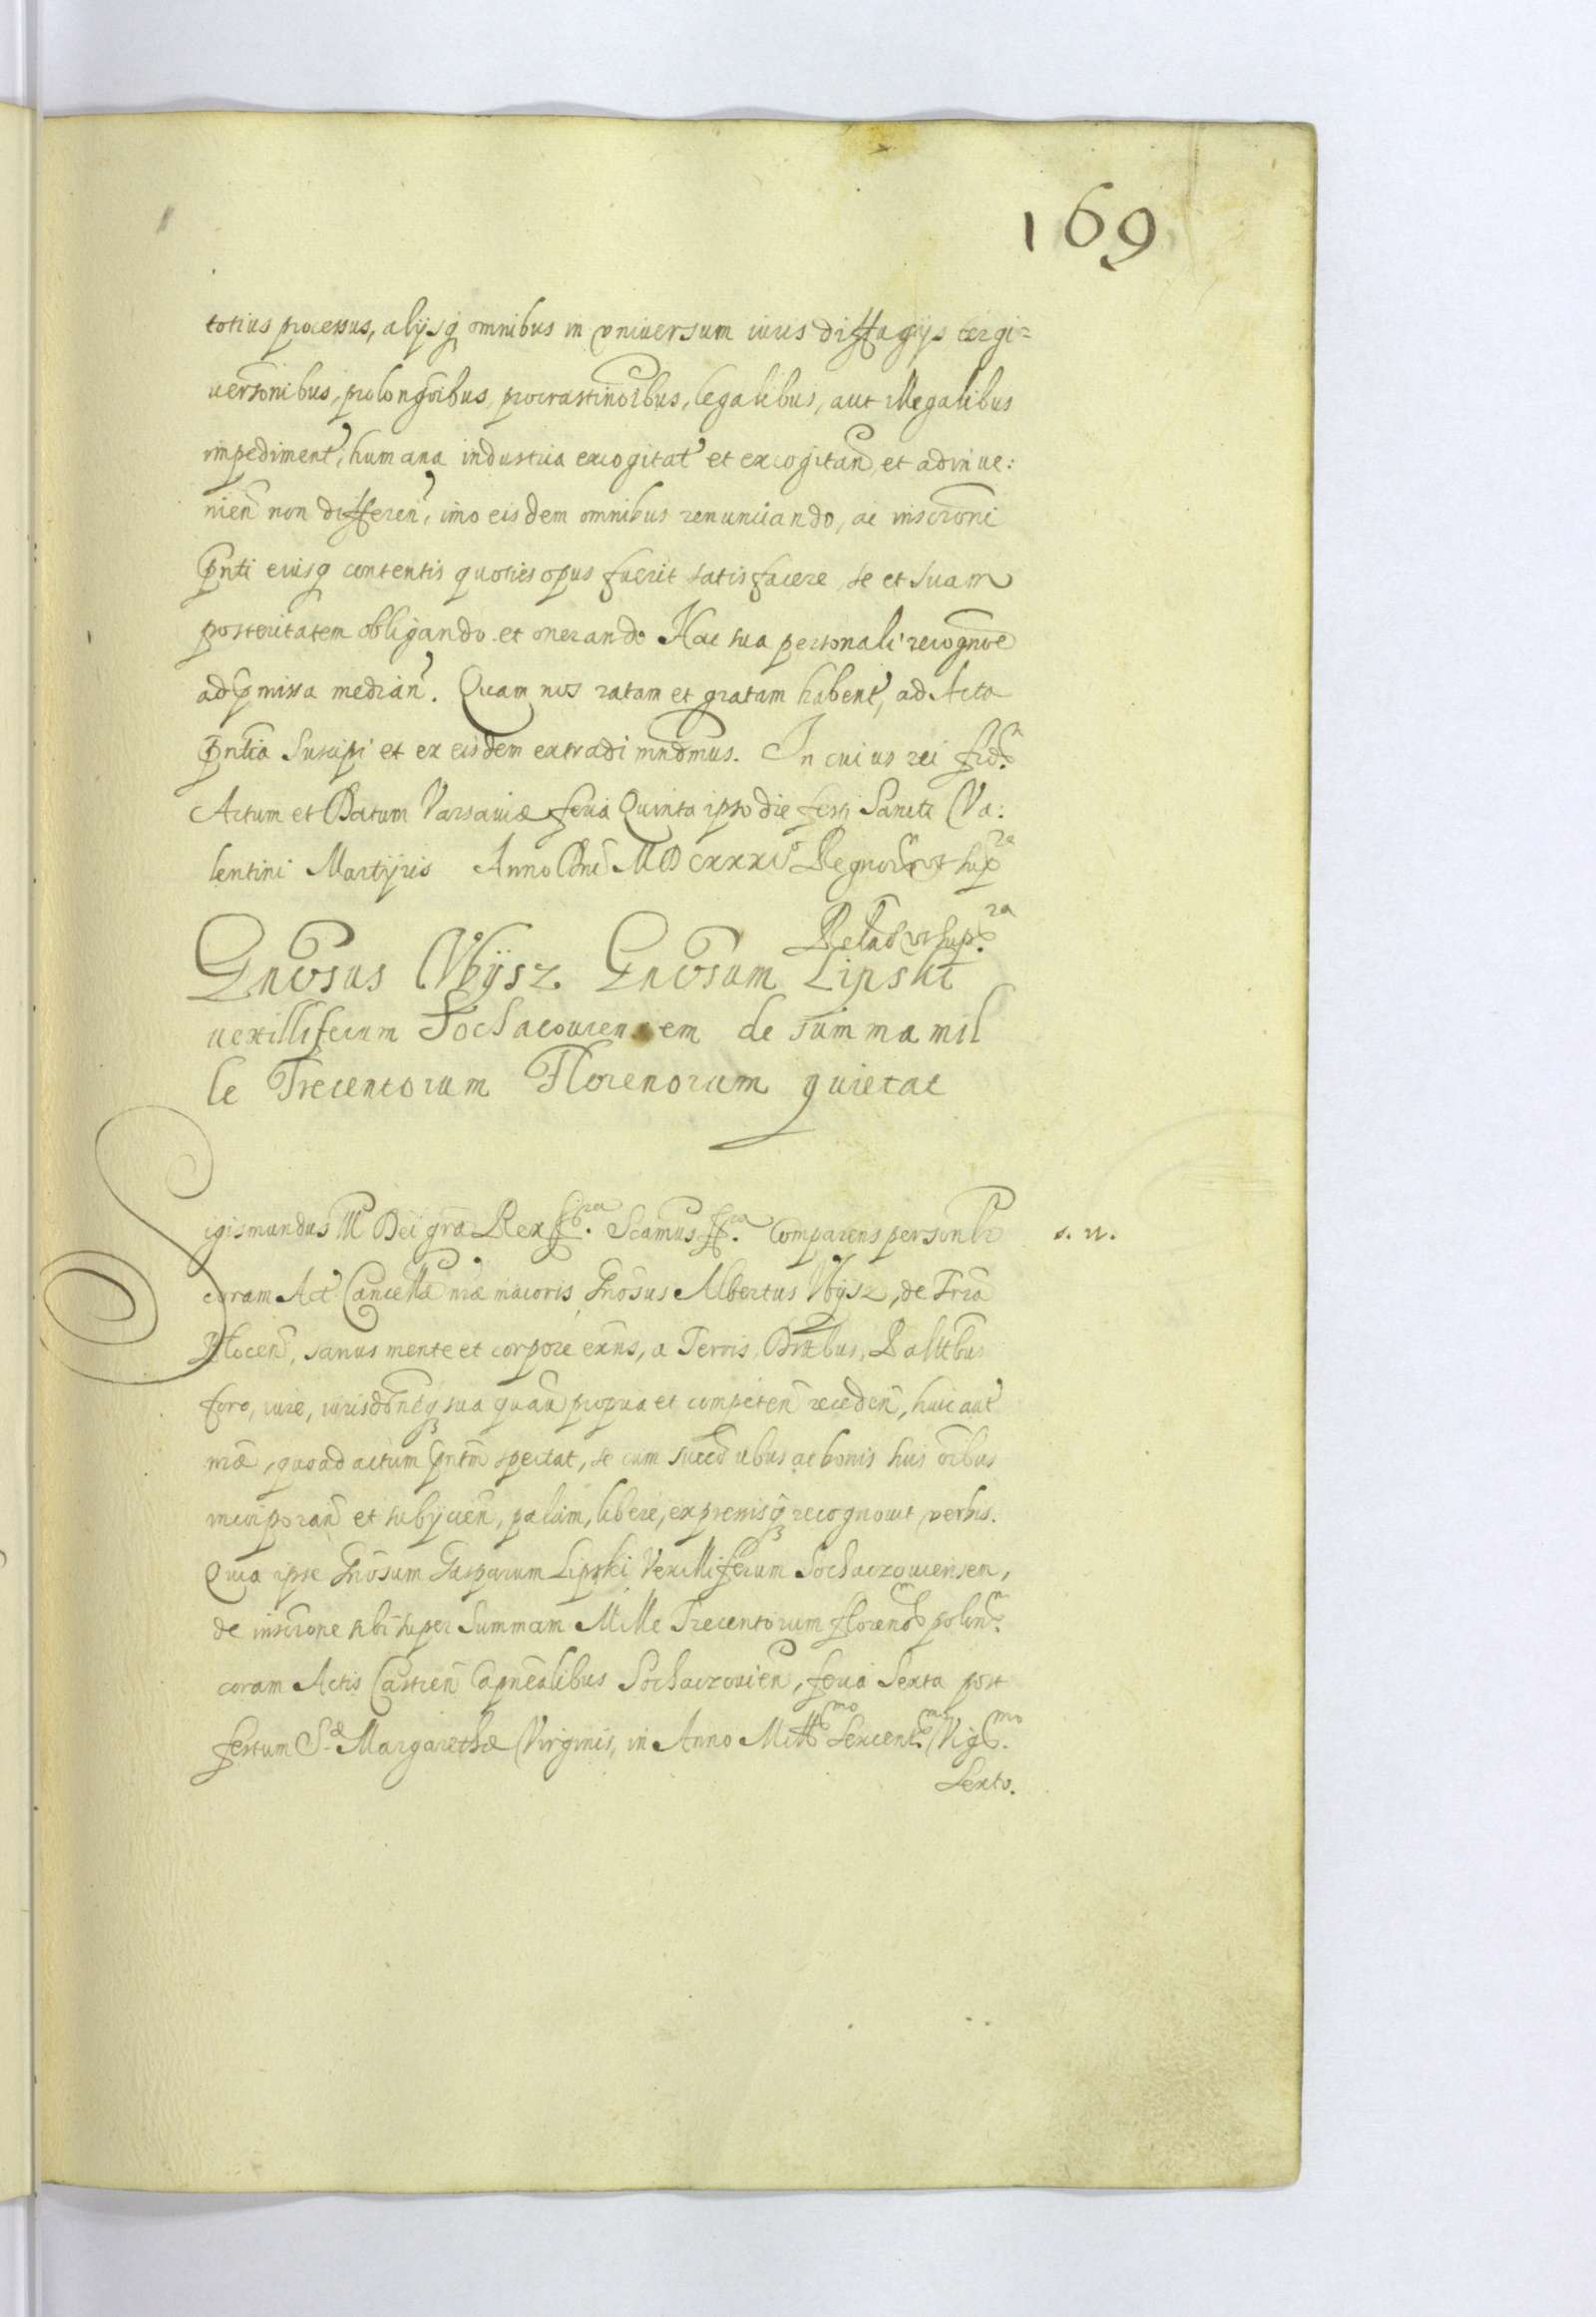 169
totius processus, alijsq̃ omnibus in vniuersum iuris diffugijs tergi=
uersõnibus, prolongõibus, procrastinõibus, legalibus, aut illegalibus
impediment', humana industria excogitat' et excogitañ, et adinue:
nieñ non differeñ, imo eisdem omnibus renunciando, ac inscrõni
p̃nti eiusq̃ contentis quoties opus fuerit satisfacere, se et suam
posteritatem obligando et onerando Hac sua personali recognõe
ad p̃missa mediañ. Quam nos ratam et gratam habent', ad Acta
p̃ntia Suscipi et ex eisdem extradi mñdmus. In cuius rei fid.
Actum et Datum Varsauiæ feria Quinta ipso die festi Sancti Va:
lentini Martyris Anno Dñi MDCXXXIIº Regnorũ vt sup.ra
Relaõ vt sup.ra
Gñosus Wijsz Gñosum Lipski
uexilliferum Sochacouiensem de summa mil
le Trecentorum Florenorum quietat
Sigismundus III Dei grã Rex ff.ra Scamus ff.ra Comparens personlr s. n.
coram Act' Cancellã nrã maioris, Gñosus Albertus Wijsz, de Trrã
Plocen̄, sanus mente et corpore exñs, a Terris, Distbus, Palttbus
foro, iure, iurisdõneq̃ sua quãuis propria et competeñ recedeñ, huic aut'
nræ, quoad actum p̃ntm spectat, se cum succõribus ac bonis suis õibus
incorporañ et subijcieñ, palam, libere, expressisq̃ recognouit verbis.
Quia ipse Gñosum Gasparum Lipski Vexilliferum Sochaczouiensem,
de inscrõne sibi super Summam Mille Trecentorum florenor polon.
coram Actis Castreñ Capñealibus Sochaczouieñ, feria Sexta post
festum S. Margarethæ Virginis, in Anno Mill.mo Sexcent.mo Vig.mo
Sexto.